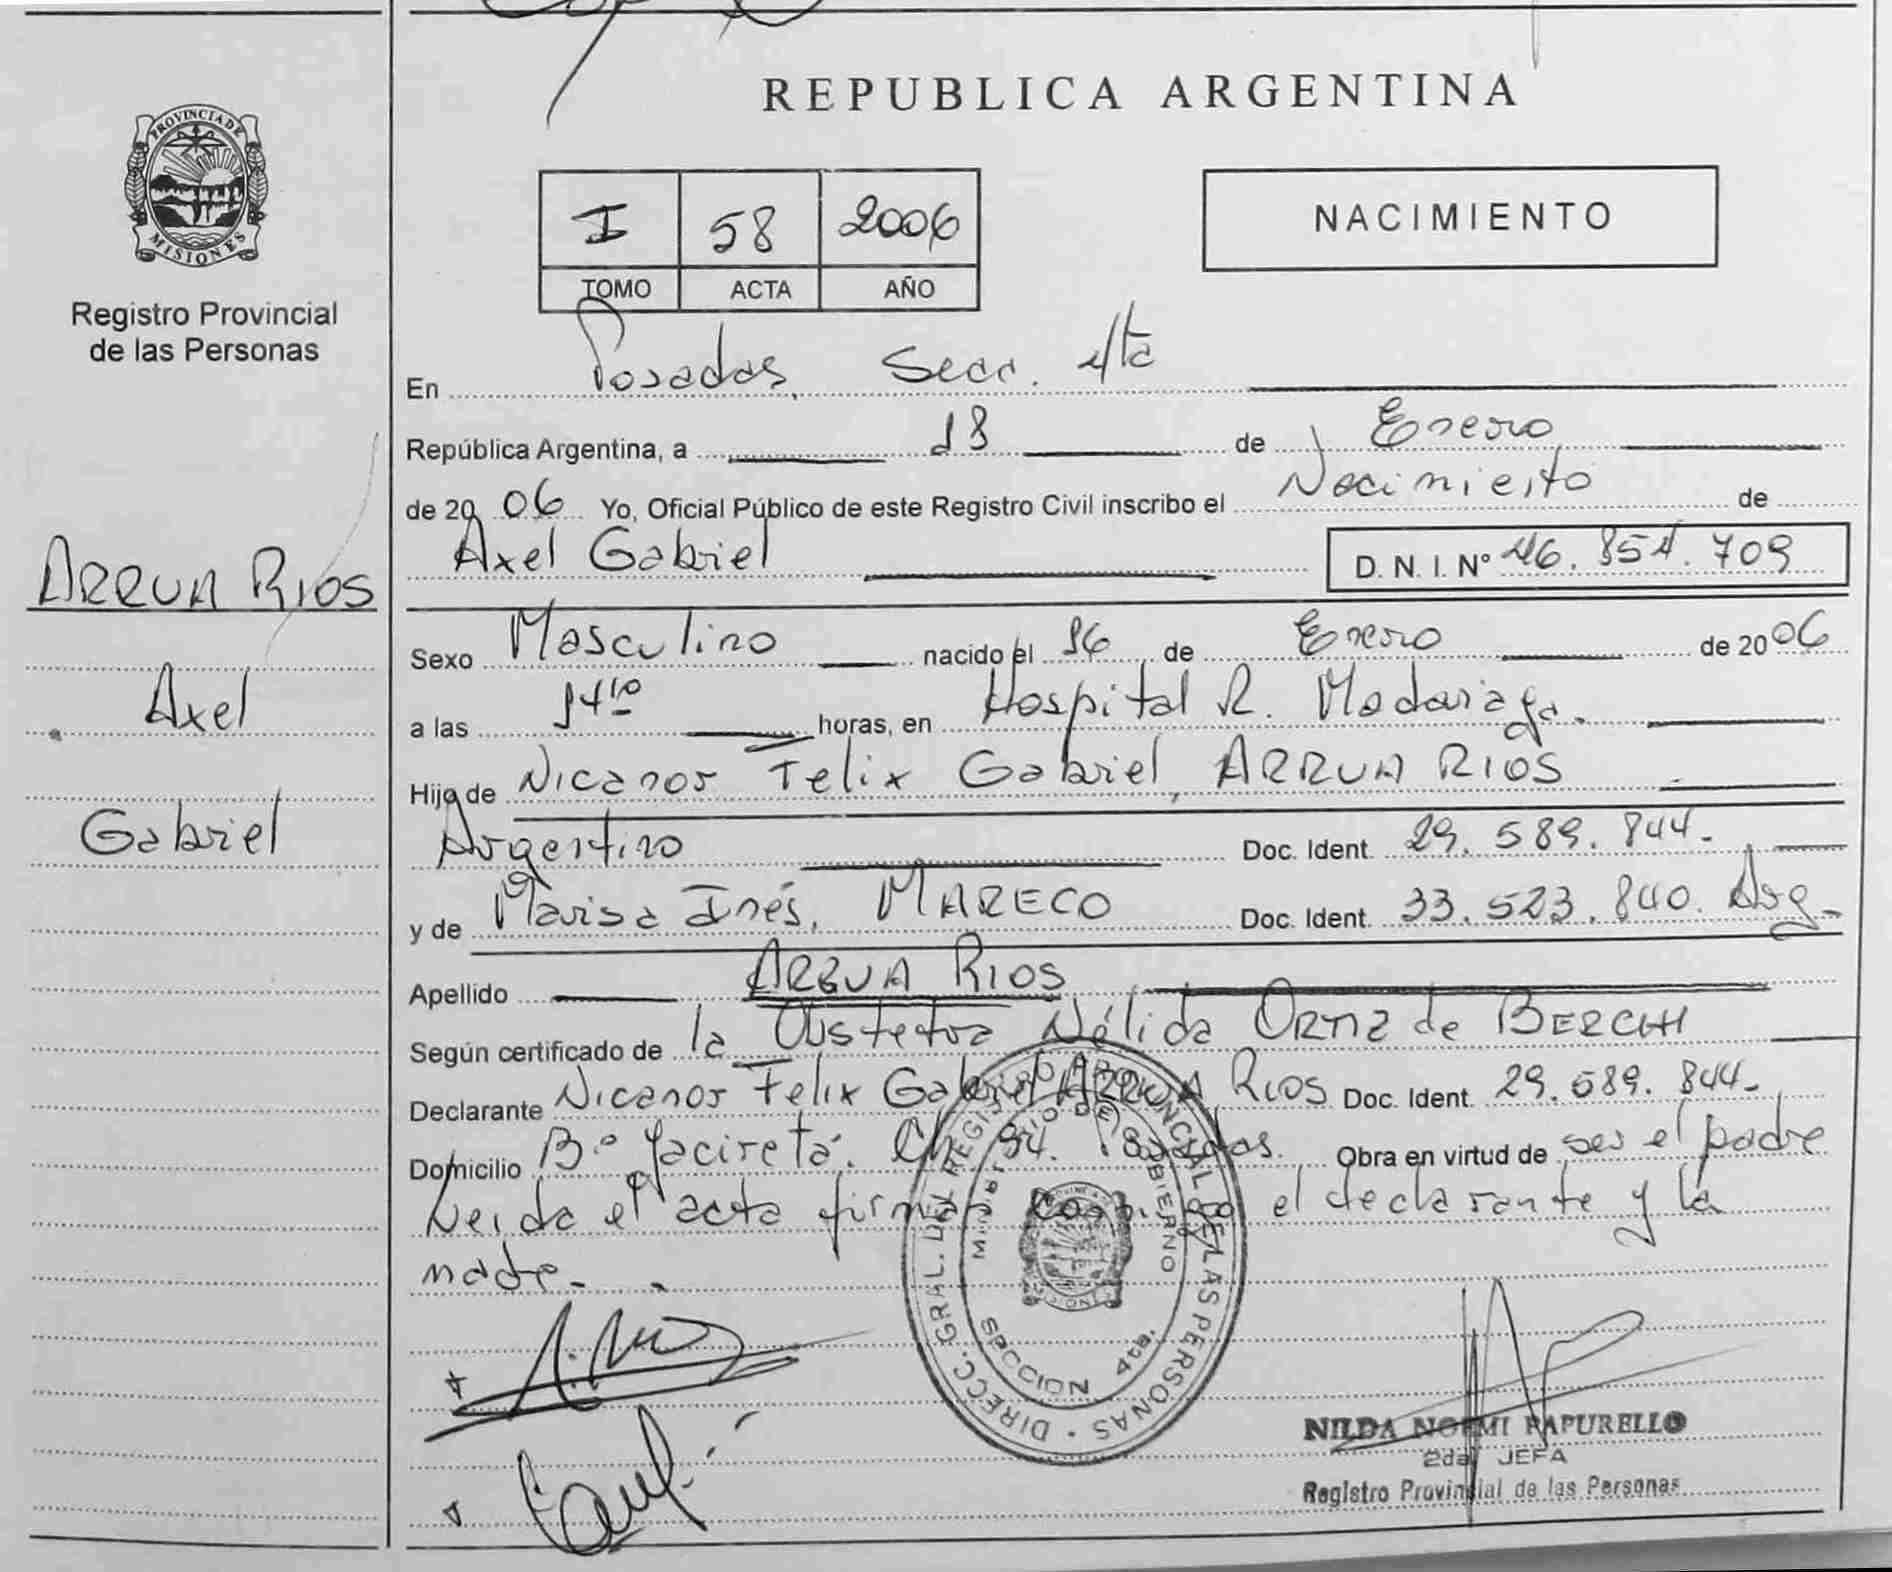 REPUBLICA ARGENTINA
PROVINCIA DE
MISIONES
Registro Provincial
de las Personas
I 58 2006
TOMO ACTA AÑO
NACIMIENTO
En Posadas, Secc. 4ta
República Argentina, a 18 de Enero
de 2006 Yo, Oficial Público de este Registro Civil inscribo el Nacimiento de
Axel Gabriel
D. N. I. Nº 46.854.709
ARRUA RIOS
Axel
Gabriel
Sexo Masculino nacido el 16 de Enero de 2006
a las 14 10 horas, en Hospital R. Madariaga.
Hijo de Nicanor Felix Gabriel, ARRUA RIOS
Argentino Doc. Ident. 29.589.844.-
y de Marisa Inés, MARECO Doc. Ident. 33.523.840. Arg.
Apellido ARRUA RIOS
Según certificado de la Obstetra Nélida ORTIZ de BERCHI
Declarante Nicanor Felix Gabriel ARRUA RIOS Doc. Ident. 29.589.844.-
Domicilio Bº Yacireta. Ch 94. Posadas. Obra en virtud de ser el padre
Leida el acta firman conmigo el declarante y la
madre.-
DIRECC. GRAL. DEL REGISTRO PROVINCIAL DE LAS PERSONAS
MINISTERIO DE GOBIERNO
MISIONES
SECCION 4ta.
NILDA NOEMI PAPURELLO
2da JEFA
Registro Provincial de las Personas